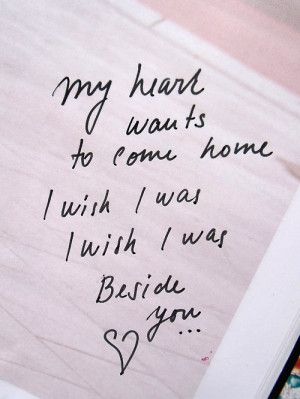 my heart
wants
to come home
I wish I was
I wish I was
Beside
you...